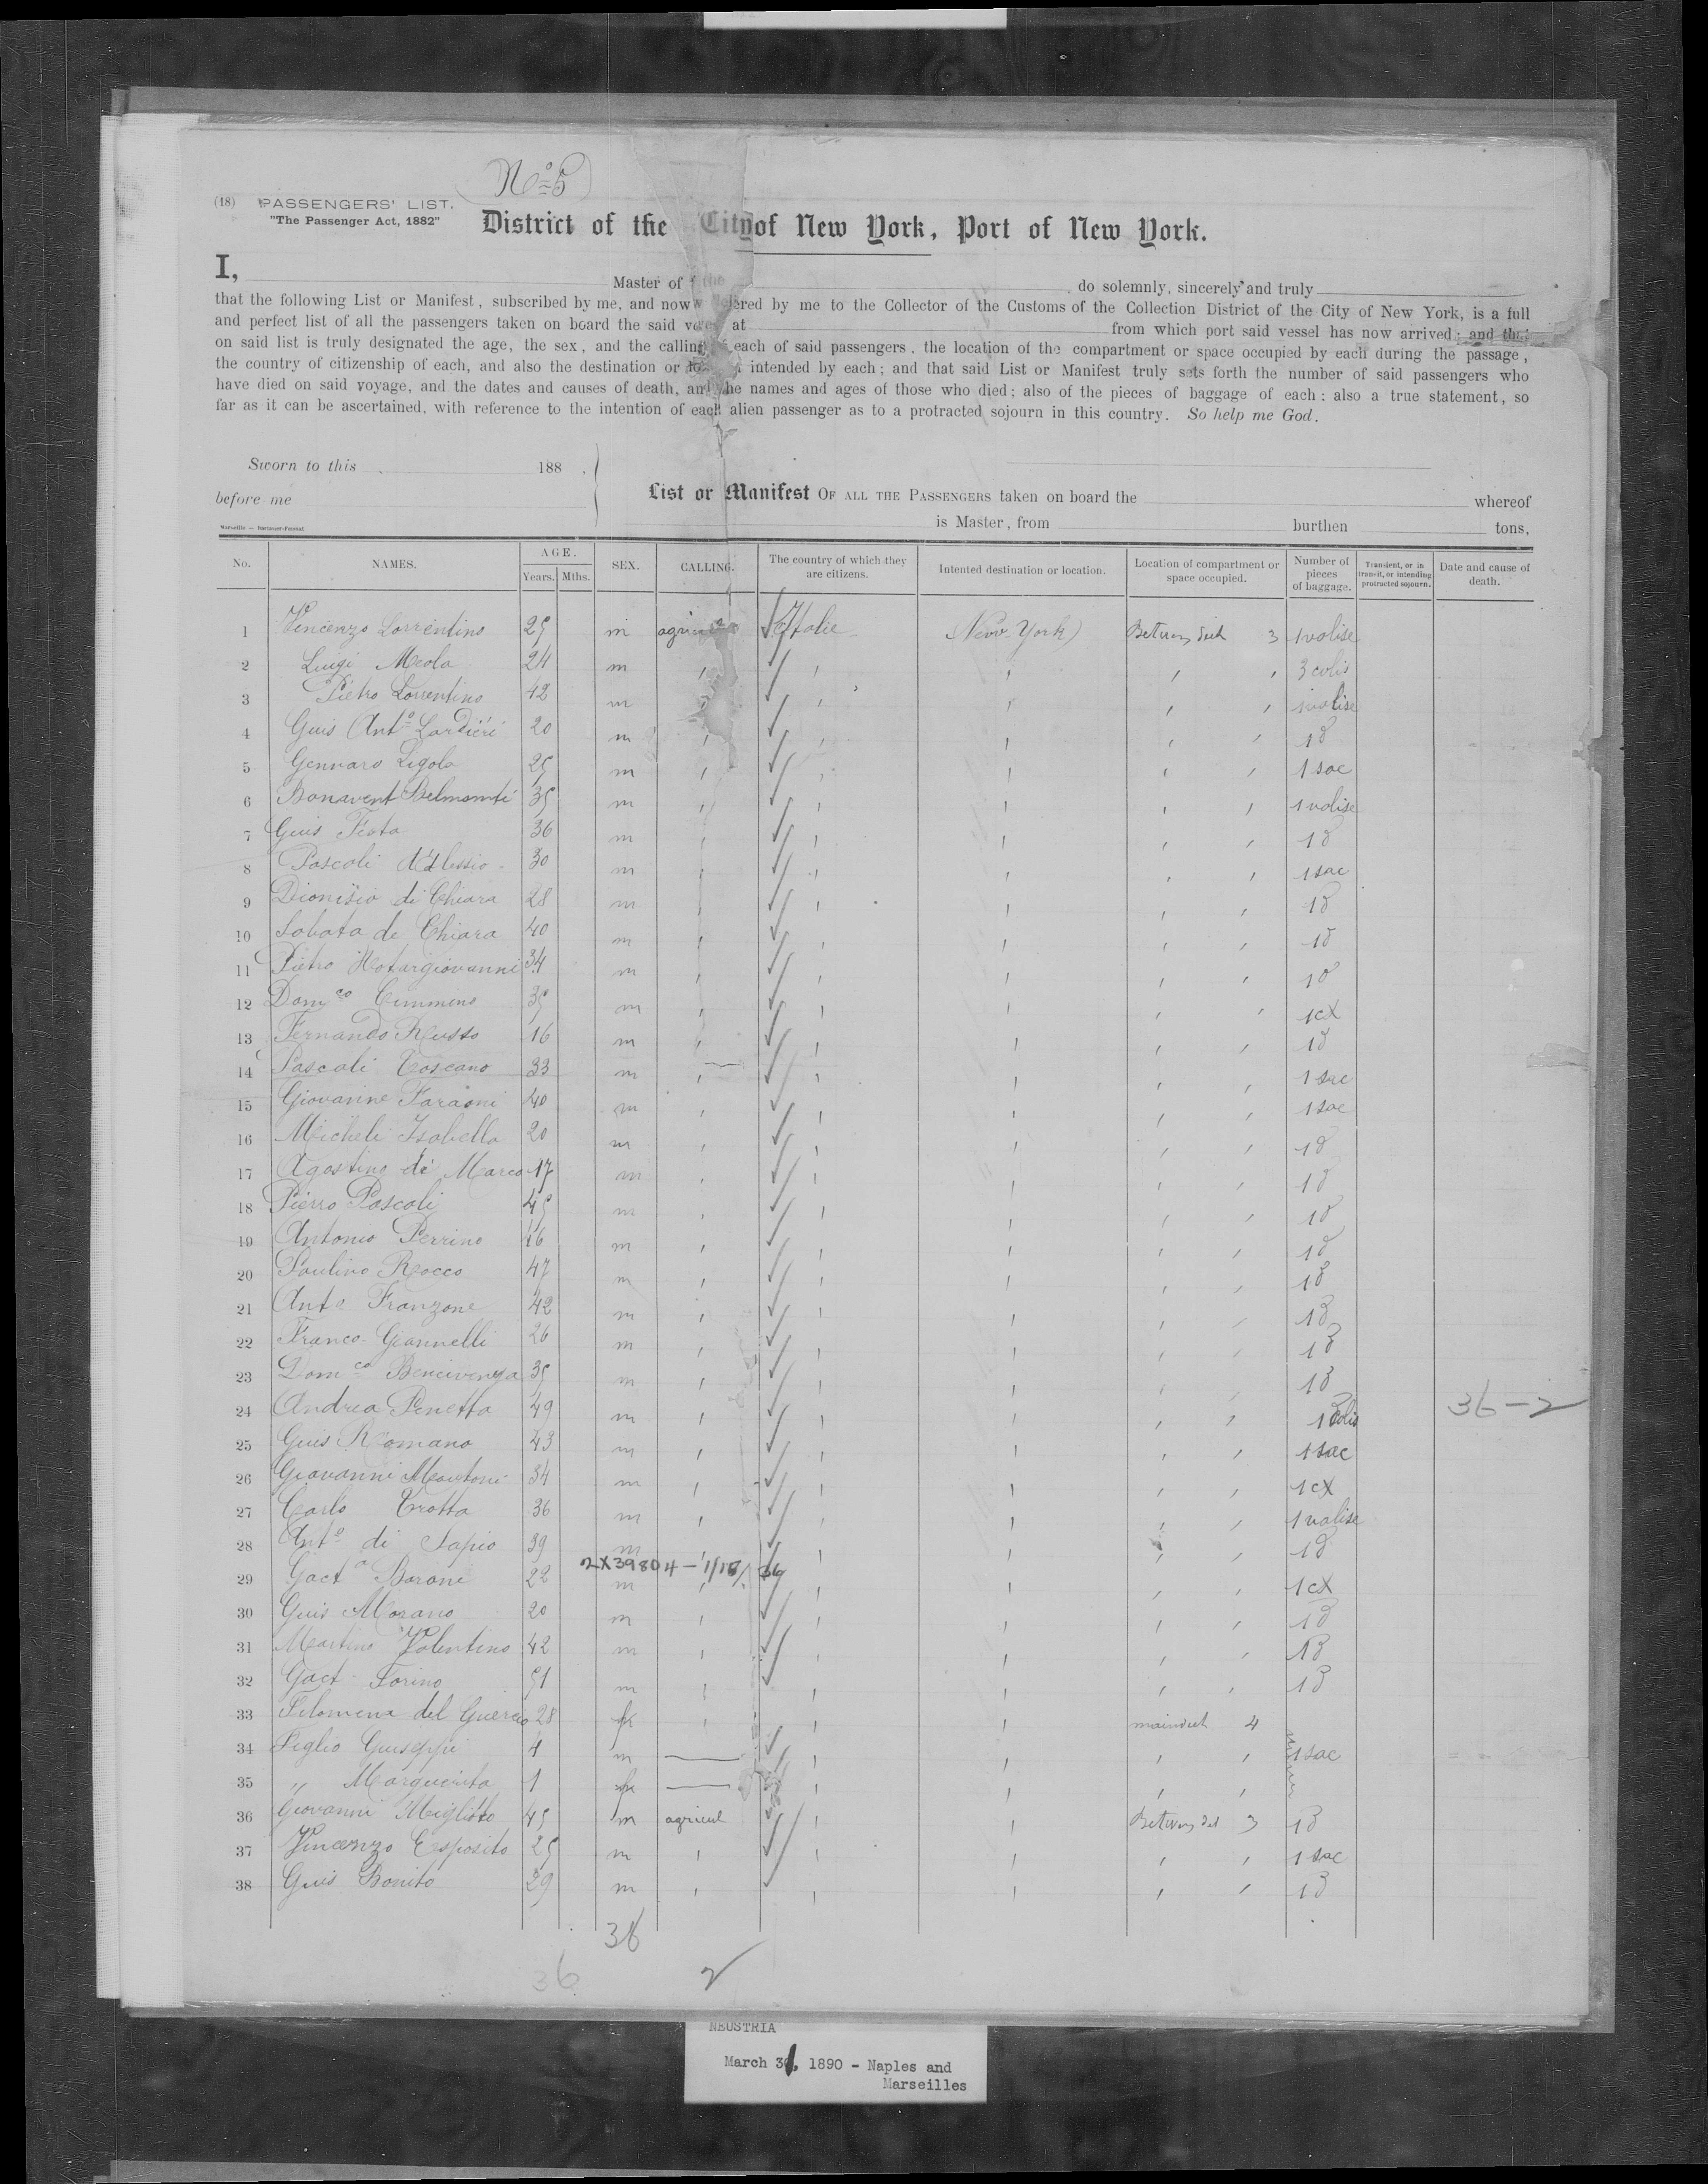 No 5
(18) PASSENGERS' LIST.
"The Passenger Act, 1882"
District of the City of New York, Port of New York.
I, Master of the do solemnly, sincerely and truly
that the following List or Manifest, subscribed by me, and now delivered by me to the Collector of the Customs of the Collection District of the City of New York, is a full
and perfect list of all the passengers taken on board the said vessel at from which port said vessel has now arrived; and that
on said list is truly designated the age, the sex, and the calling of each of said passengers, the location of the compartment or space occupied by each during the passage,
the country of citizenship of each, and also the destination or intended by each; and that said List or Manifest truly sets forth the number of said passengers who
have died on said voyage, and the dates and causes of death, and the names and ages of those who died; also of the pieces of baggage of each: also a true statement, so
far as it can be ascertained, with reference to the intention of each alien passenger as to a protracted sojourn in this country. So help me God.
Sworn to this 188 .
before me
List or Manifest OF ALL THE PASSENGERS taken on board the whereof
is Master, from burthen tons,
No. NAMES. AGE. Years. Mths. SEX. CALLING. The country of which they are citizens. Intented destination or location. Location of compartment or space occupied. Number of pieces of baggage. Transient, or in transit, or intending protracted sojourn. Date and cause of death.
1 Vincenzo Lorrentino 25 m Italie New York 3 1 valise
2 Luigi Meola 24 m 3 colis
3 Pietro Lorrentino 42 m 1 valise
4 Guis Anto Lardiéri 20 m 1 d
5 Gennaro Ligola 25 m 1 sac
6 Bonavent Belmonti 35 m 1 valise
7 Guis Festa 36 m 1 d
8 Pascali d'Alessio 30 m 1 sac
9 Dionisio di Chiara 28 m 1 d
10 Sabata de Chiara 40 m 1 d
11 Pietro Notargiovanni 34 m 1 d
12 Domco Cimmino 35 m 1 cx
13 Fernando Russo 16 m 1 d
14 Pascali Toscano 33 m 1 sac
15 Giovanine Faraoni 40 m 1 sac
16 Micheli Isabella 20 m 1 d
17 Agostino de Marco 17 m 1 d
18 Pierro Pascali 45 m 1 d
19 Antonio Perrino 16 m 1 d
20 Paulino Rocco 47 m 1 d
21 Anto Franzone 42 m 1 d
22 Franco Giannelli 26 m 1 d
23 Domco Bencivenga 35 m 1 d
24 Andrea Penetta 49 m 1 colis 36 - 2
25 Guis Romano 43 m 1 sac
26 Giovanni Martoni 34 m 1 cx
27 Carlo Trotta 36 m 1 valise
28 Anto di Sapio 39 m 1 d
2X39804
29 Gaeto Barone 22 m 1 cx
30 Guis Morano 20 m 1 d
31 Martino Valentino 42 m 1 d
32 Gaet Torino 51 m 1 d
33 Filomena del Guercio 28 fe maindeck 4
34 Figlio Guiseppi 4 m 1 sac
35 " Marguerita 1 fe
36 Giovanni Migliolo 45 m agricul 3 1 d
37 Vincenzo Esposito 25 m 1 sac
38 Guis Bonito 39 m 1 d
36
36 2
NEUSTRIA
March 31, 1890 - Naples and
Marseilles